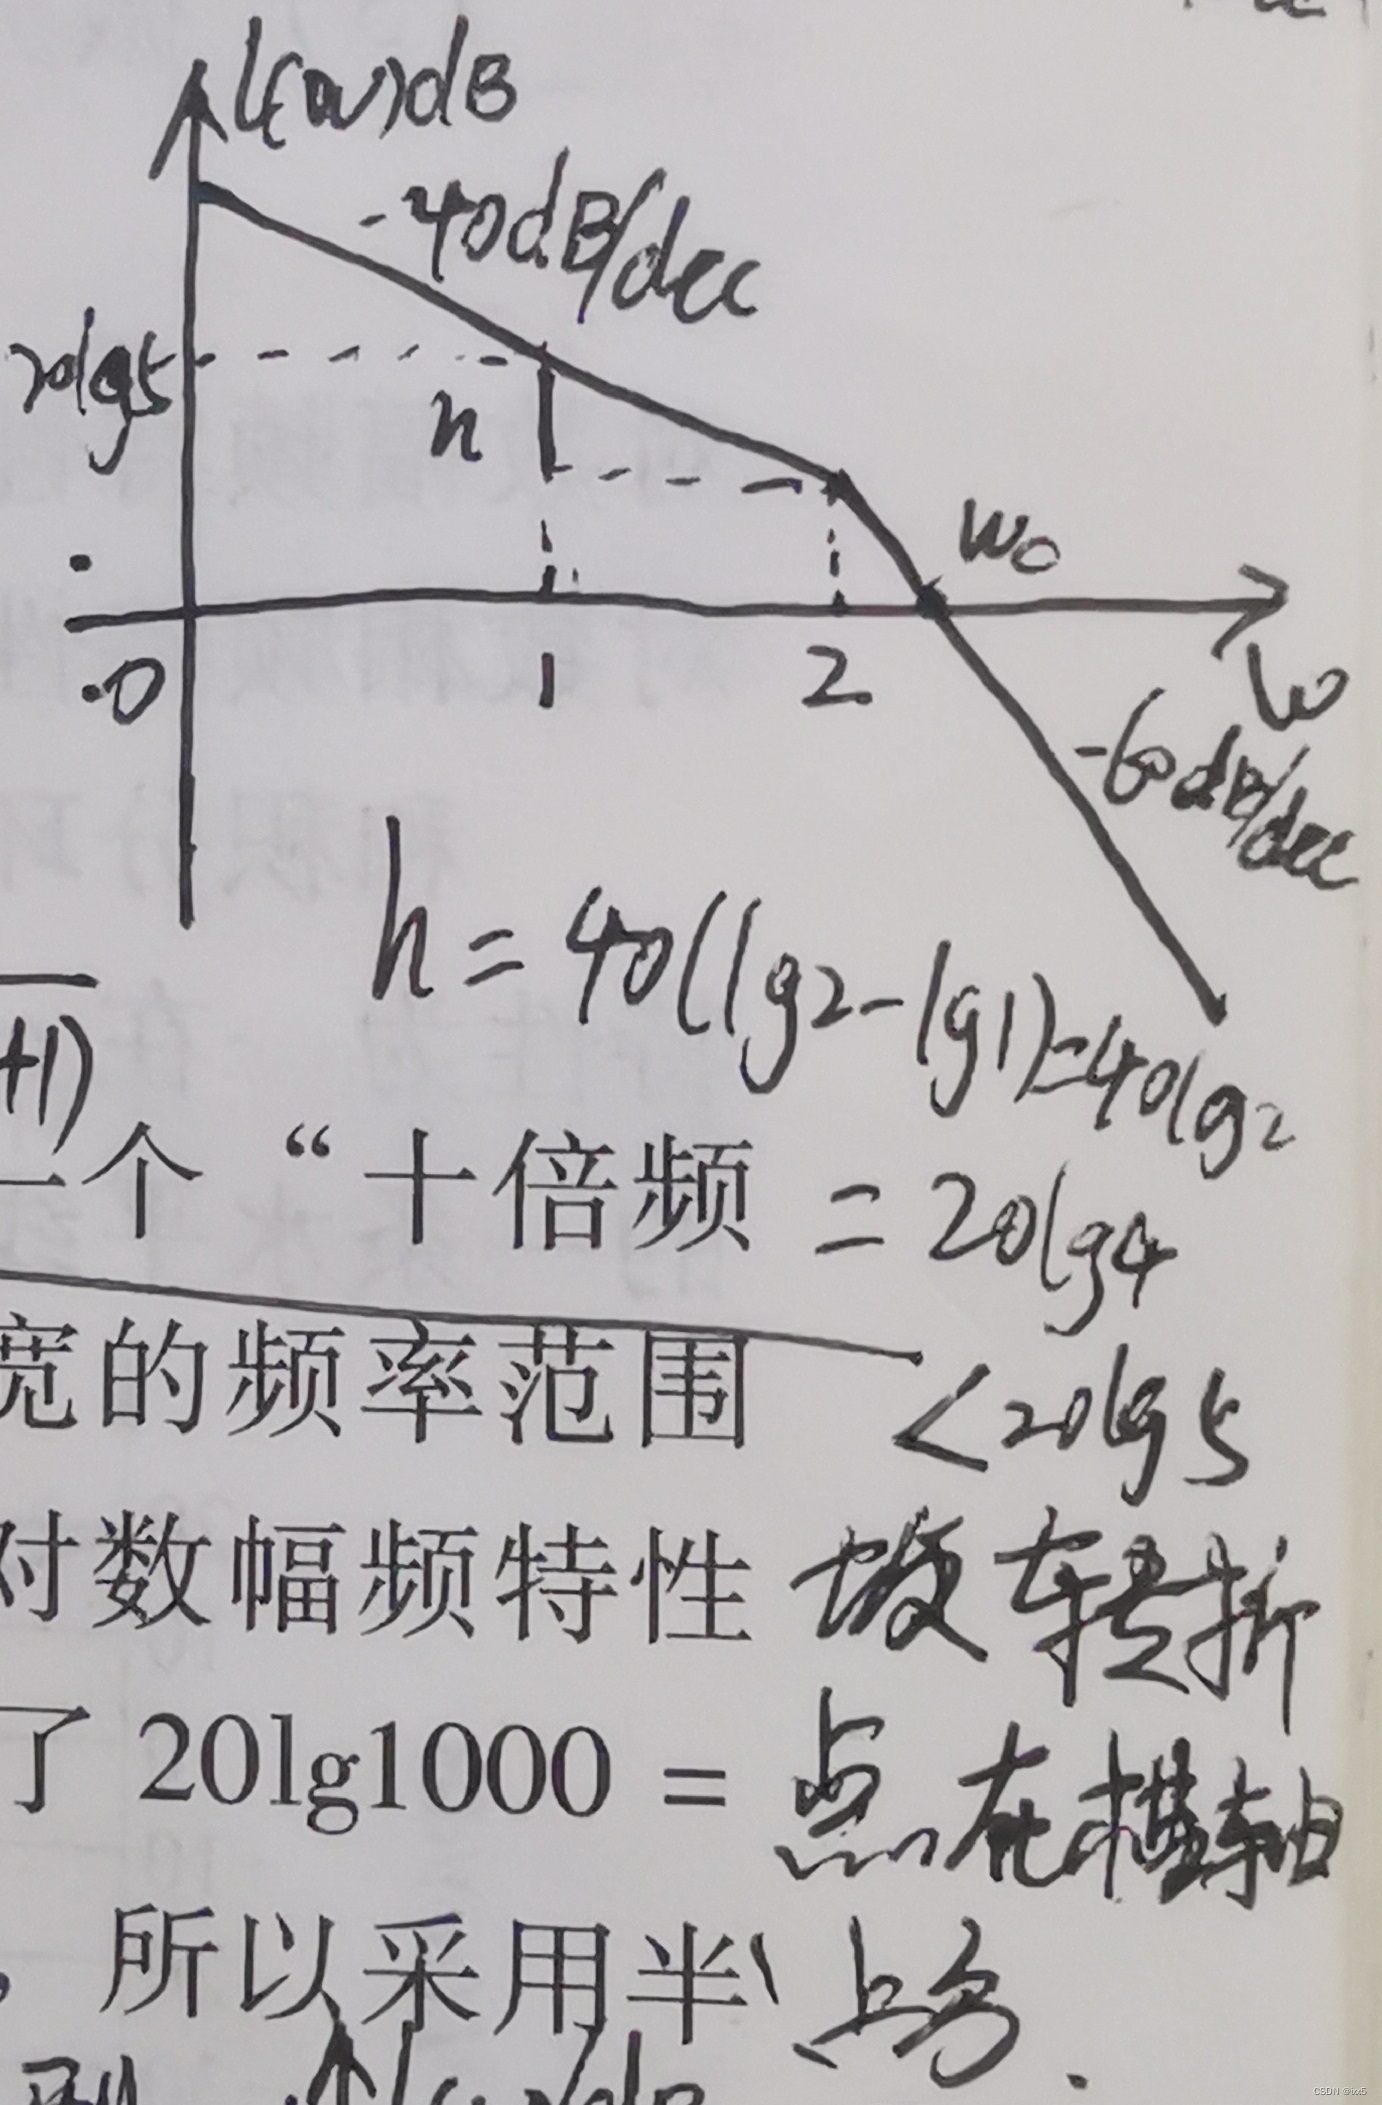 L(w)dB
-40dB/dec
20lg5
h
w0
0
1
2
w
-60dB/dec
h=40(lg2-lg1)=40lg2
+1)
一个“十倍频
=20lg4
宽的频率范围
<20lg5
对数幅频特性
故转折
了 20lg1000 =
点在横轴
，所以采用半
上方.
CSDN @ixx5